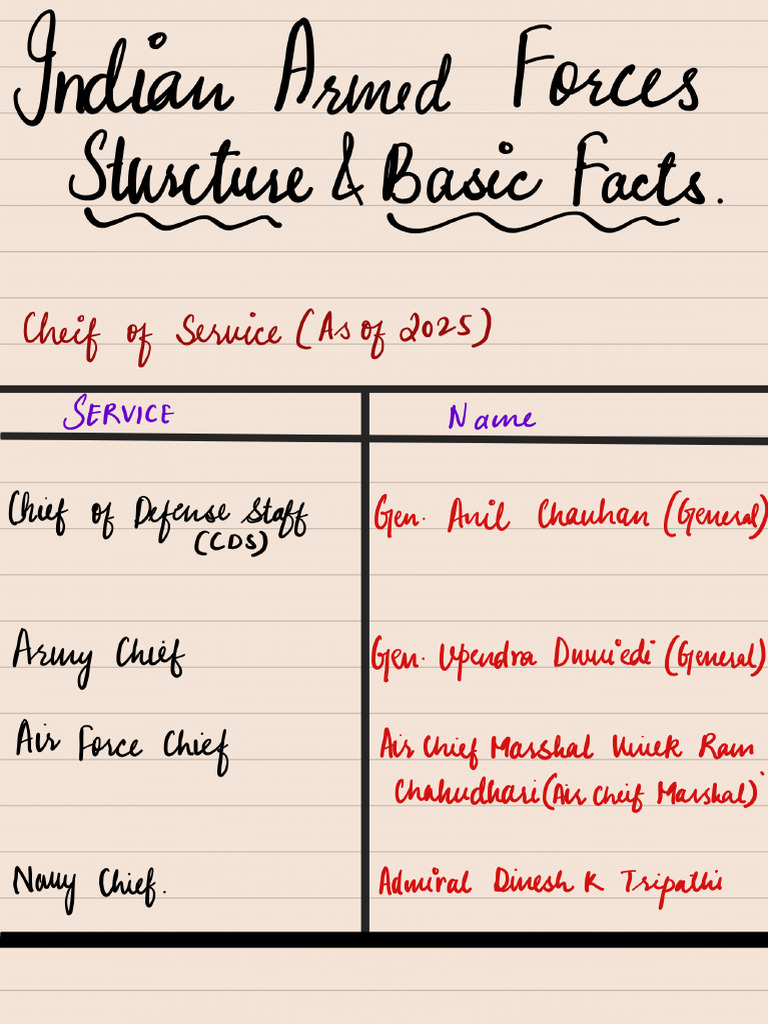 Indian Armed Forces
Sturcture & Basic Facts.
Cheif of Service (As of 2025)
SERVICE Name
Chief of Defense Staff Gen. Anil Chauhan (General)
(CDS)
Army Chief Gen. Upendra Dwivedi (General)
Air Force Chief Air Chief Marshal Vivek Ram
Chahudhari (Air Cheif Marshal)
Navy Chief. Admiral Dinesh K Tripathi